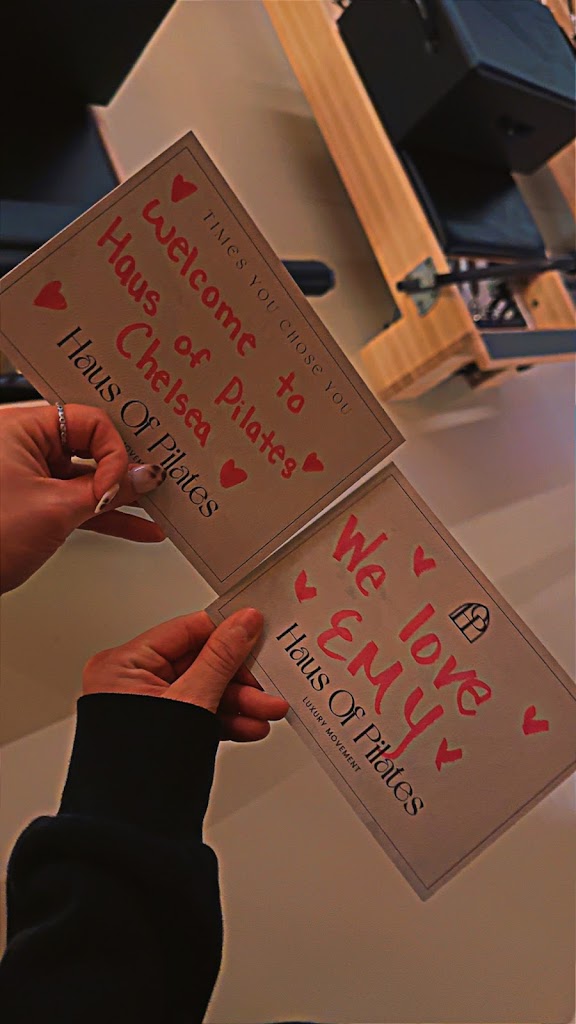 TIMES YOU CHOSE YOU
Welcome to
Haus of Pilates
Chelsea
Haus Of Pilates
We love
EMY
Haus Of Pilates
LUXURY MOVEMENT